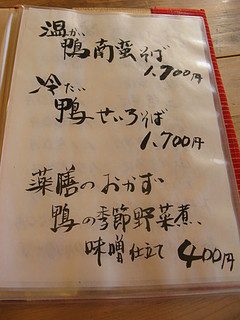 温かい
鴨南蛮そば
1,700円
冷たい
鴨せいろそば
1,700円
薬膳のおかず
鴨の季節野菜煮、
味噌仕立て 400円